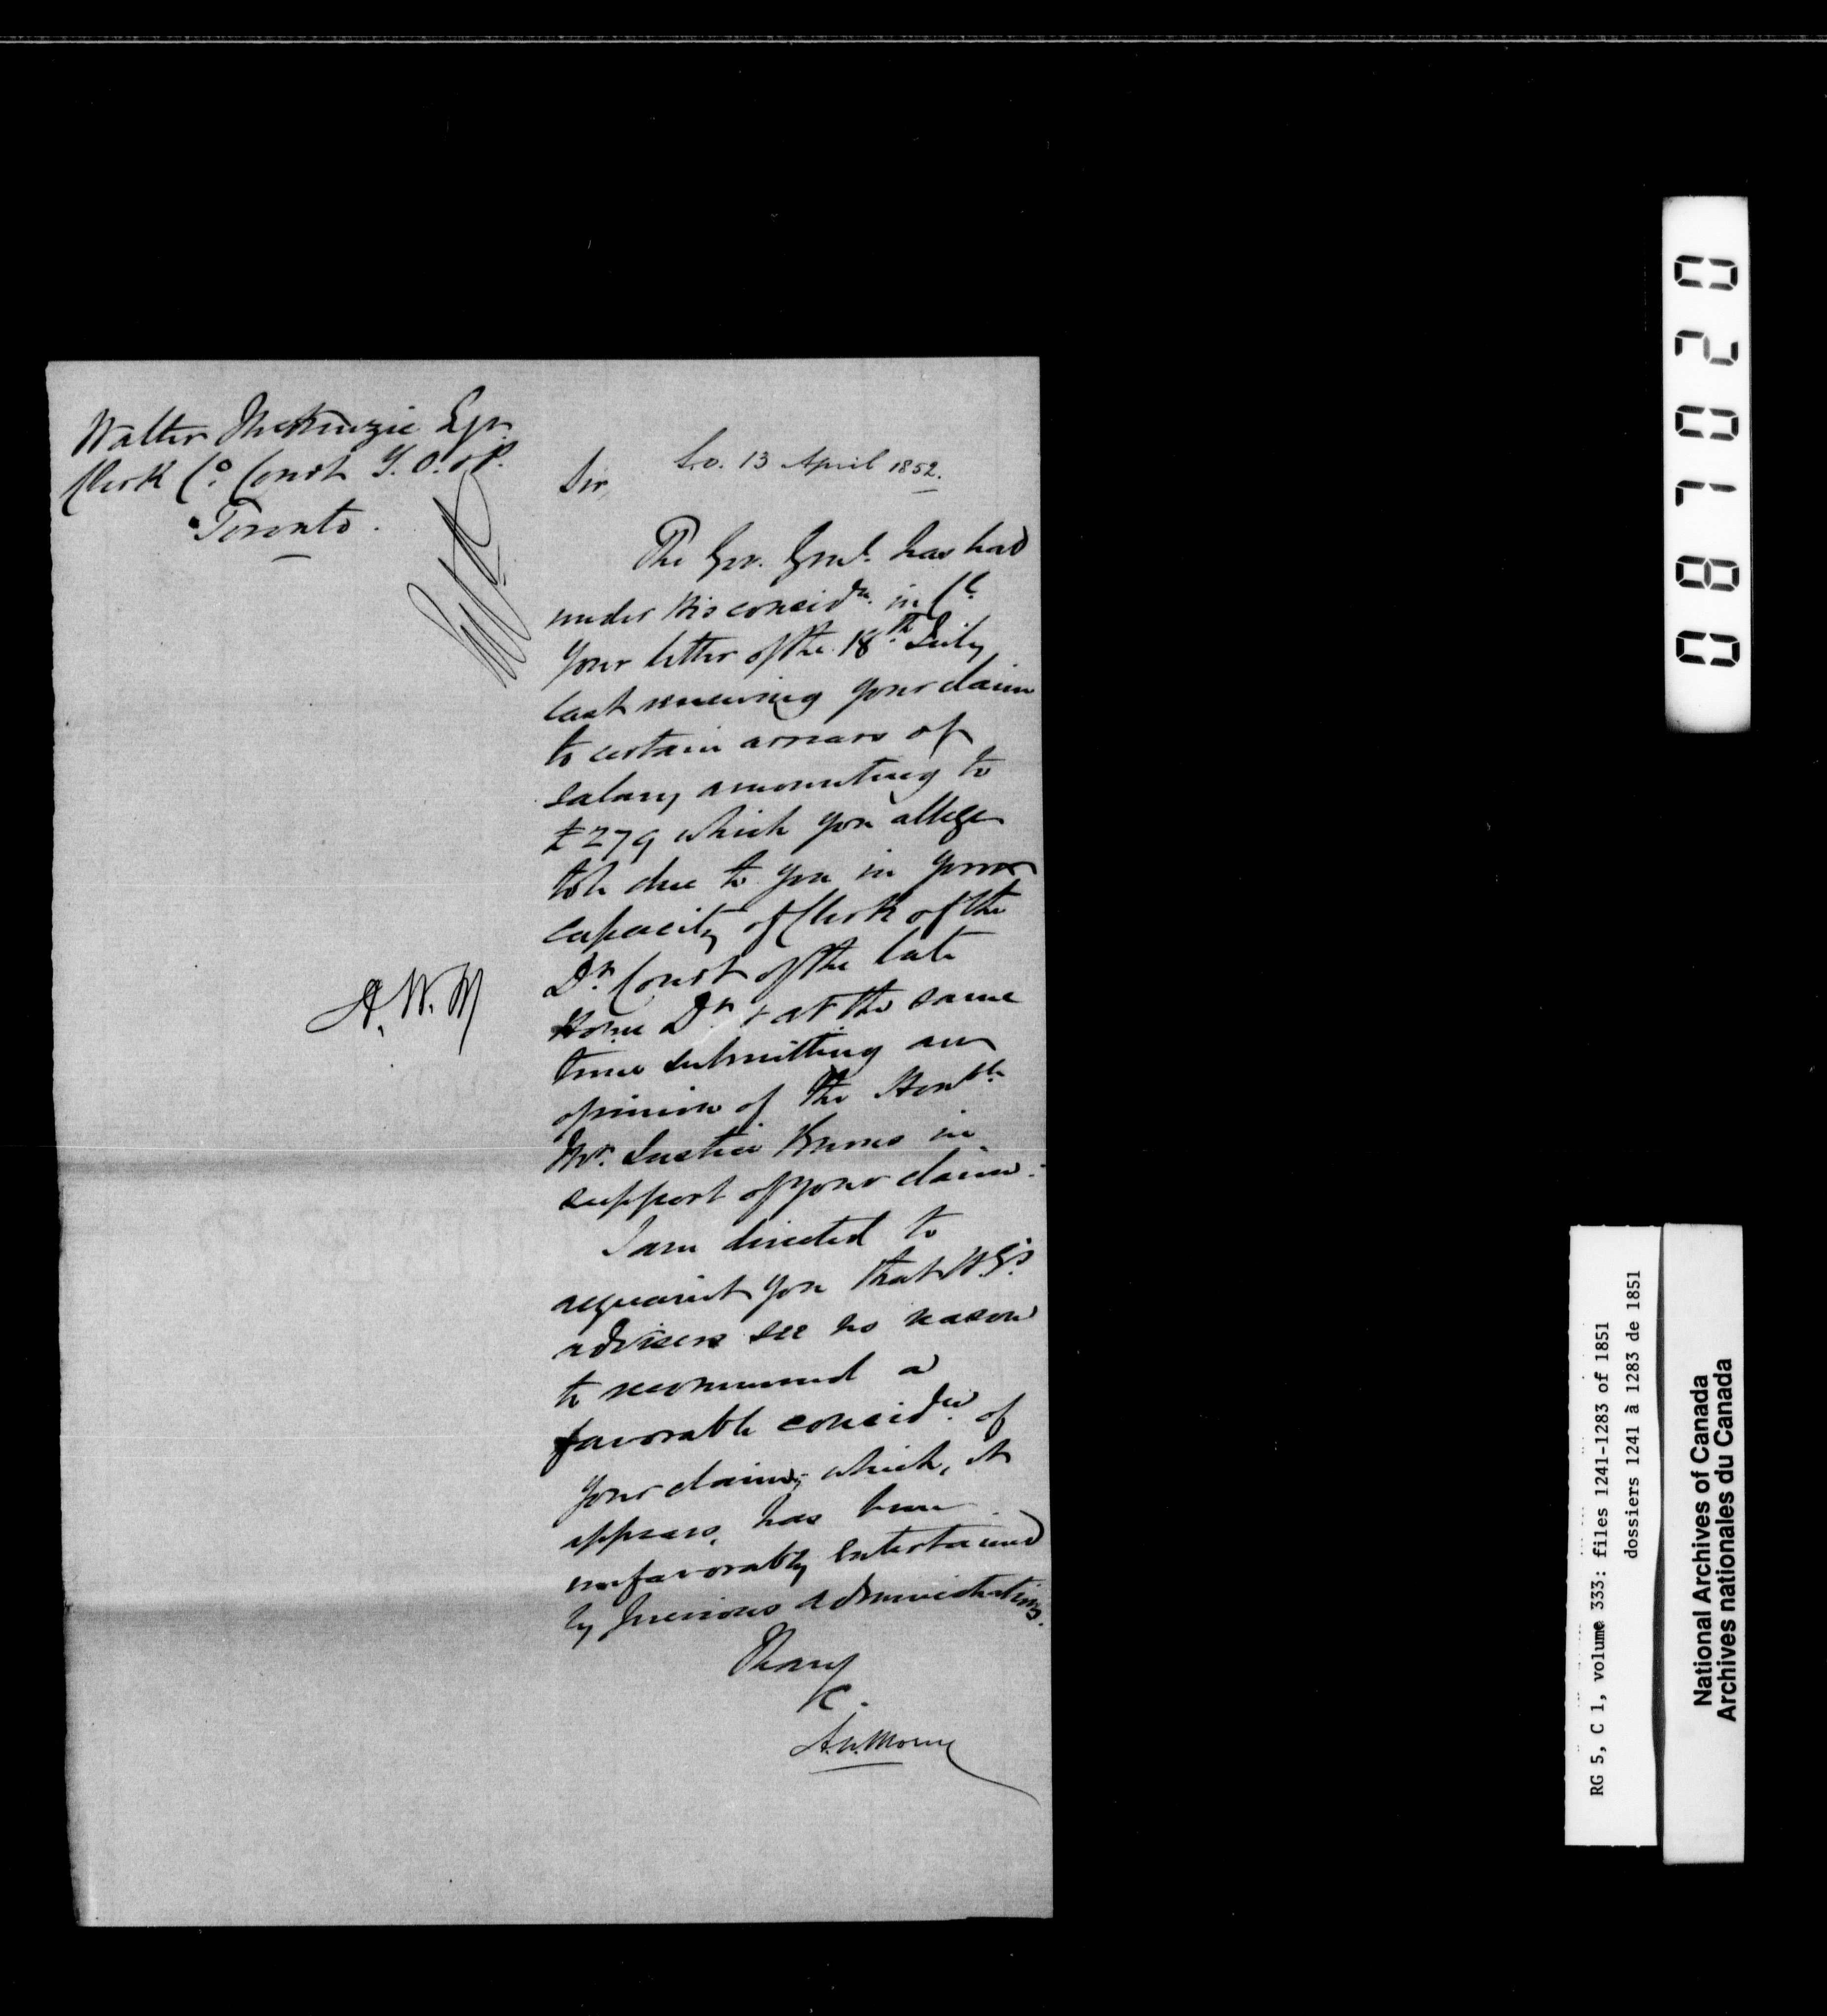 Walter McKenzie Esqr.
Clerk Co. Court Y. O. & P.
Toronto.
S.O. 13 April 1852.
Sir,
The Gov. Genl. has had
under his considn. in Cl.
your letter of the 18th. July
last renewing your claim
to certain arrears of
salary amounting to
£279 which you allege
to be due to you in your
capacity of Clerk of the
Dt. Court of the late
Home Dt. & at the same
time submitting an
opinion of the Honble
Mr. Justice Burns in
support of your claim.
I am directed to
acquaint you that H.E's.
advisers see no reason
to recommend a
favorable considn. of
your claim, which, it
appears, has been
unfavorably entertained
by previous administrations.
I have
&c.
A.N. Morin
A.N.M
087020
RG 5, C 1, volume 333: files 1241-1283 of 1851
dossiers 1241 à 1283 de 1851
National Archives of Canada
Archives nationales du Canada